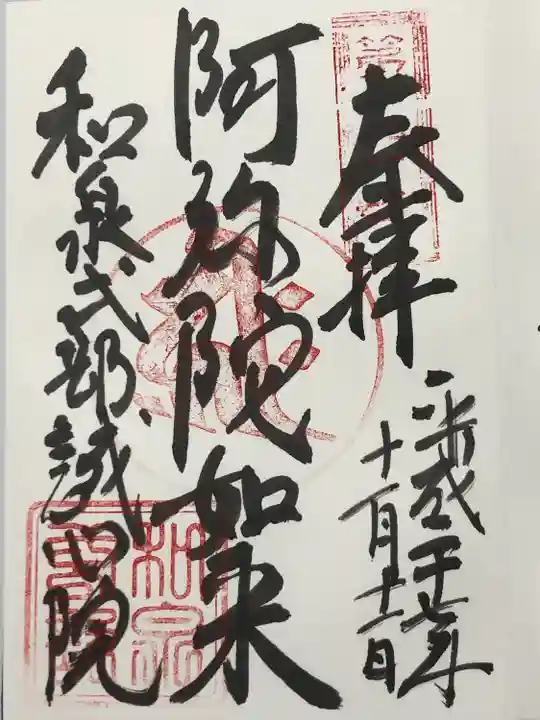 奉拝
平成二十七年
十一月十二日
阿弥陀如来
和泉式部誠心院